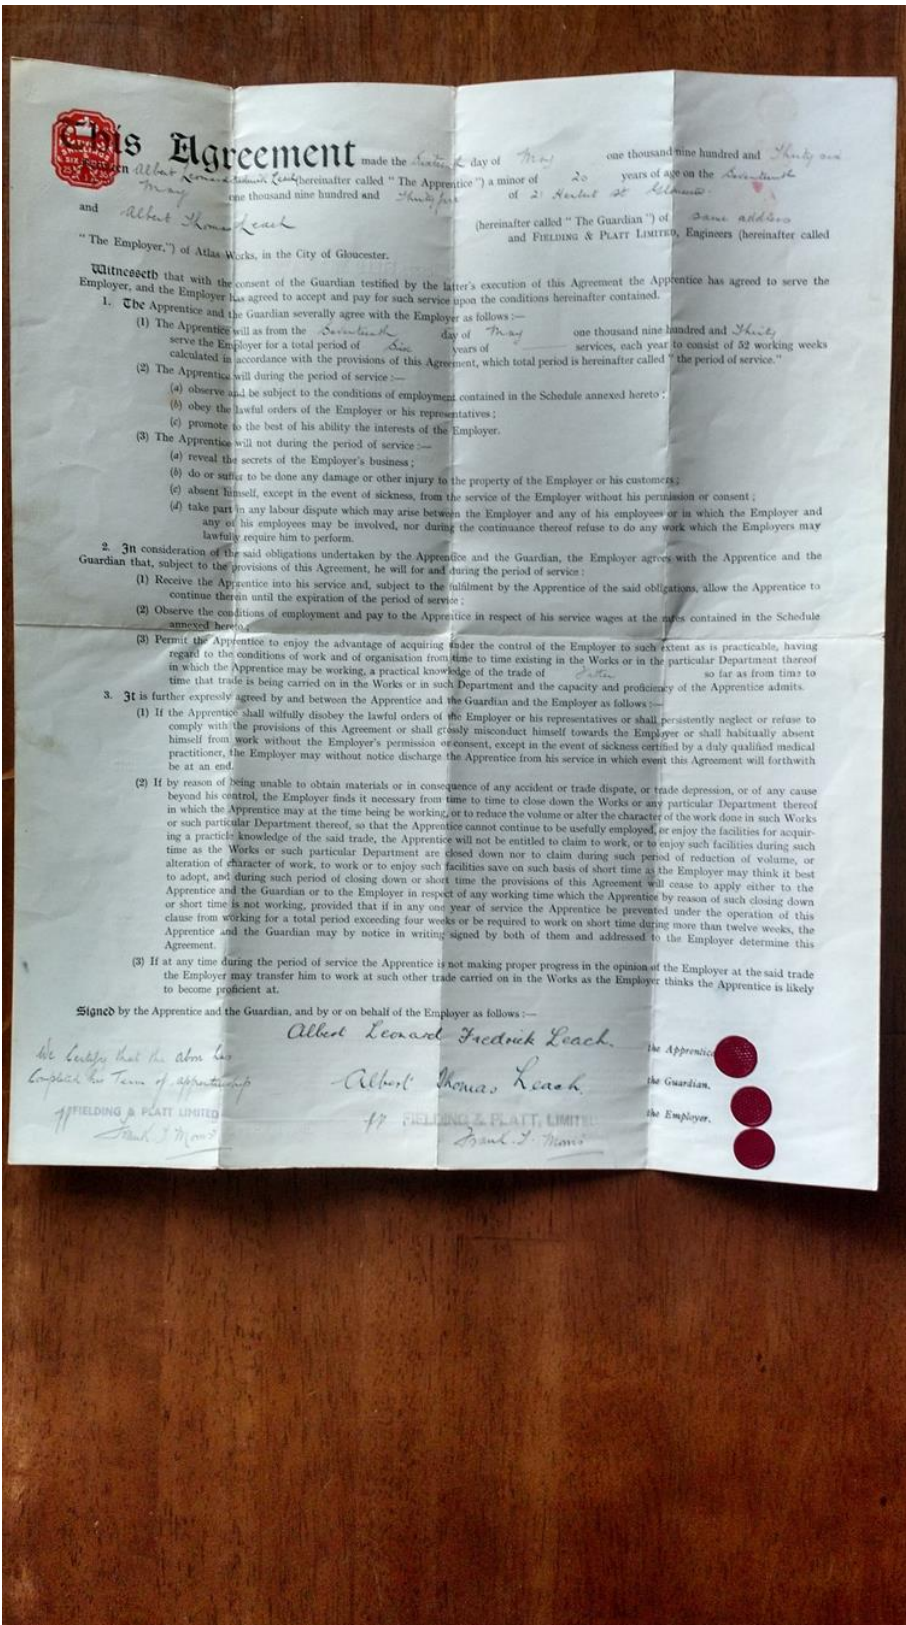 This Agreement made the Sixteenth day of May one thousand nine hundred and Thirty six
Between Albert Leonard Fredrick Leach (hereinafter called " The Apprentice ") a minor of 20 years of age on the Seventeenth
May one thousand nine hundred and Thirty five of 21 Herbert St Gloucester.
and Albert Thomas Leach (hereinafter called " The Guardian ") of same address
and FIELDING & PLATT LIMITED, Engineers (hereinafter called
" The Employer,") of Atlas Works, in the City of Gloucester.
Witnesseth that with the consent of the Guardian testified by the latter's execution of this Agreement the Apprentice has agreed to serve the
Employer, and the Employer has agreed to accept and pay for such service upon the conditions hereinafter contained.
1. The Apprentice and the Guardian severally agree with the Employer as follows :—
(1) The Apprentice will as from the Seventeenth day of May one thousand nine hundred and Thirty
serve the Employer for a total period of Six years of services, each year to consist of 52 working weeks
calculated in accordance with the provisions of this Agreement, which total period is hereinafter called " the period of service."
(2) The Apprentice will during the period of service :—
(a) observe and be subject to the conditions of employment contained in the Schedule annexed hereto ;
(b) obey the lawful orders of the Employer or his representatives ;
(c) promote to the best of his ability the interests of the Employer.
(3) The Apprentice will not during the period of service :—
(a) reveal the secrets of the Employer's business ;
(b) do or suffer to be done any damage or other injury to the property of the Employer or his customers ;
(c) absent himself, except in the event of sickness, from the service of the Employer without his permission or consent ;
(d) take part in any labour dispute which may arise between the Employer and any of his employees or in which the Employer and
any of his employees may be involved, nor during the continuance thereof refuse to do any work which the Employers may
lawfully require him to perform.
2. In consideration of the said obligations undertaken by the Apprentice and the Guardian, the Employer agrees with the Apprentice and the
Guardian that, subject to the provisions of this Agreement, he will for and during the period of service :
(1) Receive the Apprentice into his service and, subject to the fulfilment by the Apprentice of the said obligations, allow the Apprentice to
continue therein until the expiration of the period of service ;
(2) Observe the conditions of employment and pay to the Apprentice in respect of his service wages at the rates contained in the Schedule
annexed hereto ;
(3) Permit the Apprentice to enjoy the advantage of acquiring under the control of the Employer to such extent as is practicable, having
regard to the conditions of work and of organisation from time to time existing in the Works or in the particular Department thereof
in which the Apprentice may be working, a practical knowledge of the trade of so far as from time to
time that trade is being carried on in the Works or in such Department and the capacity and proficiency of the Apprentice admits.
3. It is further expressly agreed by and between the Apprentice and the Guardian and the Employer as follows :—
(1) If the Apprentice shall wilfully disobey the lawful orders of the Employer or his representatives or shall persistently neglect or refuse to
comply with the provisions of this Agreement or shall grossly misconduct himself towards the Employer or shall habitually absent
himself from work without the Employer's permission or consent, except in the event of sickness certified by a duly qualified medical
practitioner, the Employer may without notice discharge the Apprentice from his service in which event this Agreement will forthwith
be at an end.
(2) If by reason of being unable to obtain materials or in consequence of any accident or trade dispute, or trade depression, or of any cause
beyond his control, the Employer finds it necessary from time to time to close down the Works or any particular Department thereof
in which the Apprentice may at the time being be working, or to reduce the volume or alter the character of the work done in such Works
or such particular Department thereof, so that the Apprentice cannot continue to be usefully employed, or enjoy the facilities for acquir-
ing a practicle knowledge of the said trade, the Apprentice will not be entitled to claim to work, or to enjoy such facilities during such
time as the Works or such particular Department are closed down nor to claim during such period of reduction of volume, or
alteration of character of work, to work or to enjoy such facilities save on such basis of short time as the Employer may think it best
to adopt, and during such period of closing down or short time the provisions of this Agreement will cease to apply either to the
Apprentice and the Guardian or to the Employer in respect of any working time which the Apprentice by reason of such closing down
or short time is not working, provided that if in any one year of service the Apprentice be prevented under the operation of this
clause from working for a total period exceeding four weeks or be required to work on short time during more than twelve weeks, the
Apprentice and the Guardian may by notice in writing signed by both of them and addressed to the Employer determine this
Agreement.
(3) If at any time during the period of service the Apprentice is not making proper progress in the opinion of the Employer at the said trade
the Employer may transfer him to work at such other trade carried on in the Works as the Employer thinks the Apprentice is likely
to become proficient at.
Signed by the Apprentice and the Guardian, and by or on behalf of the Employer as follows :—
Albert Leonard Fredrick Leach. the Apprentice
We Certify that the above has
Completed his Term of apprenticeship
Albert Thomas Leach. the Guardian.
pp FIELDING & PLATT LIMITED
pp FIELDING & PLATT, LIMITED the Employer.
Frank T. Morris
Frank T. Morris